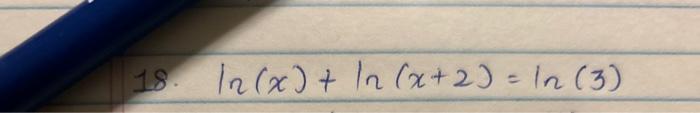 18. ln(x) + ln(x+2) = ln(3)